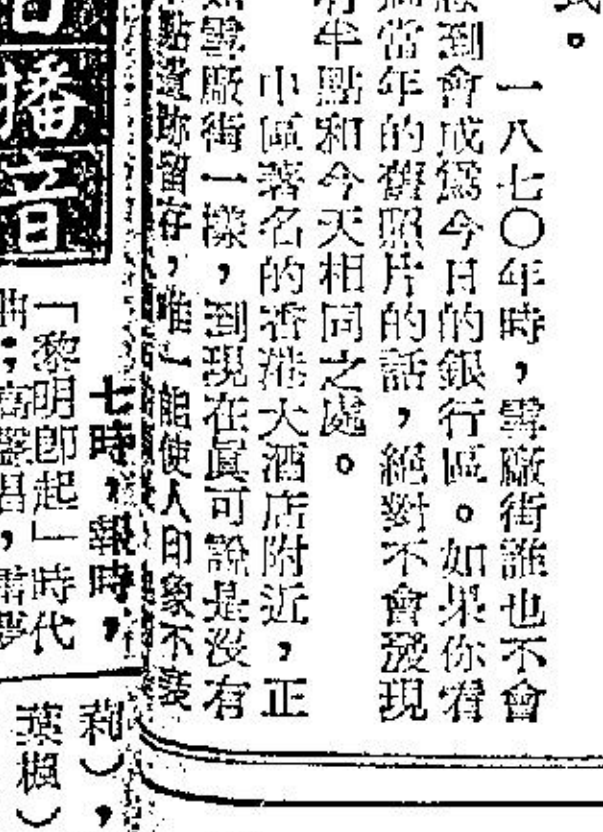 式。
一八七〇年時，雪廠街誰也不會
想到會成爲今日的銀行區。如果你看
過當年的舊照片的話，絕對不會發現
有半點和今天相同之處。
中區著名的香港大酒店附近，正
如雪廠街一樣，到現在眞可說是沒有
點遺跡留存，唯一能使人印象不衰
播音
七時，報時，
「黎明卽起」時代
曲：高聲唱，
莉），
葉楓）